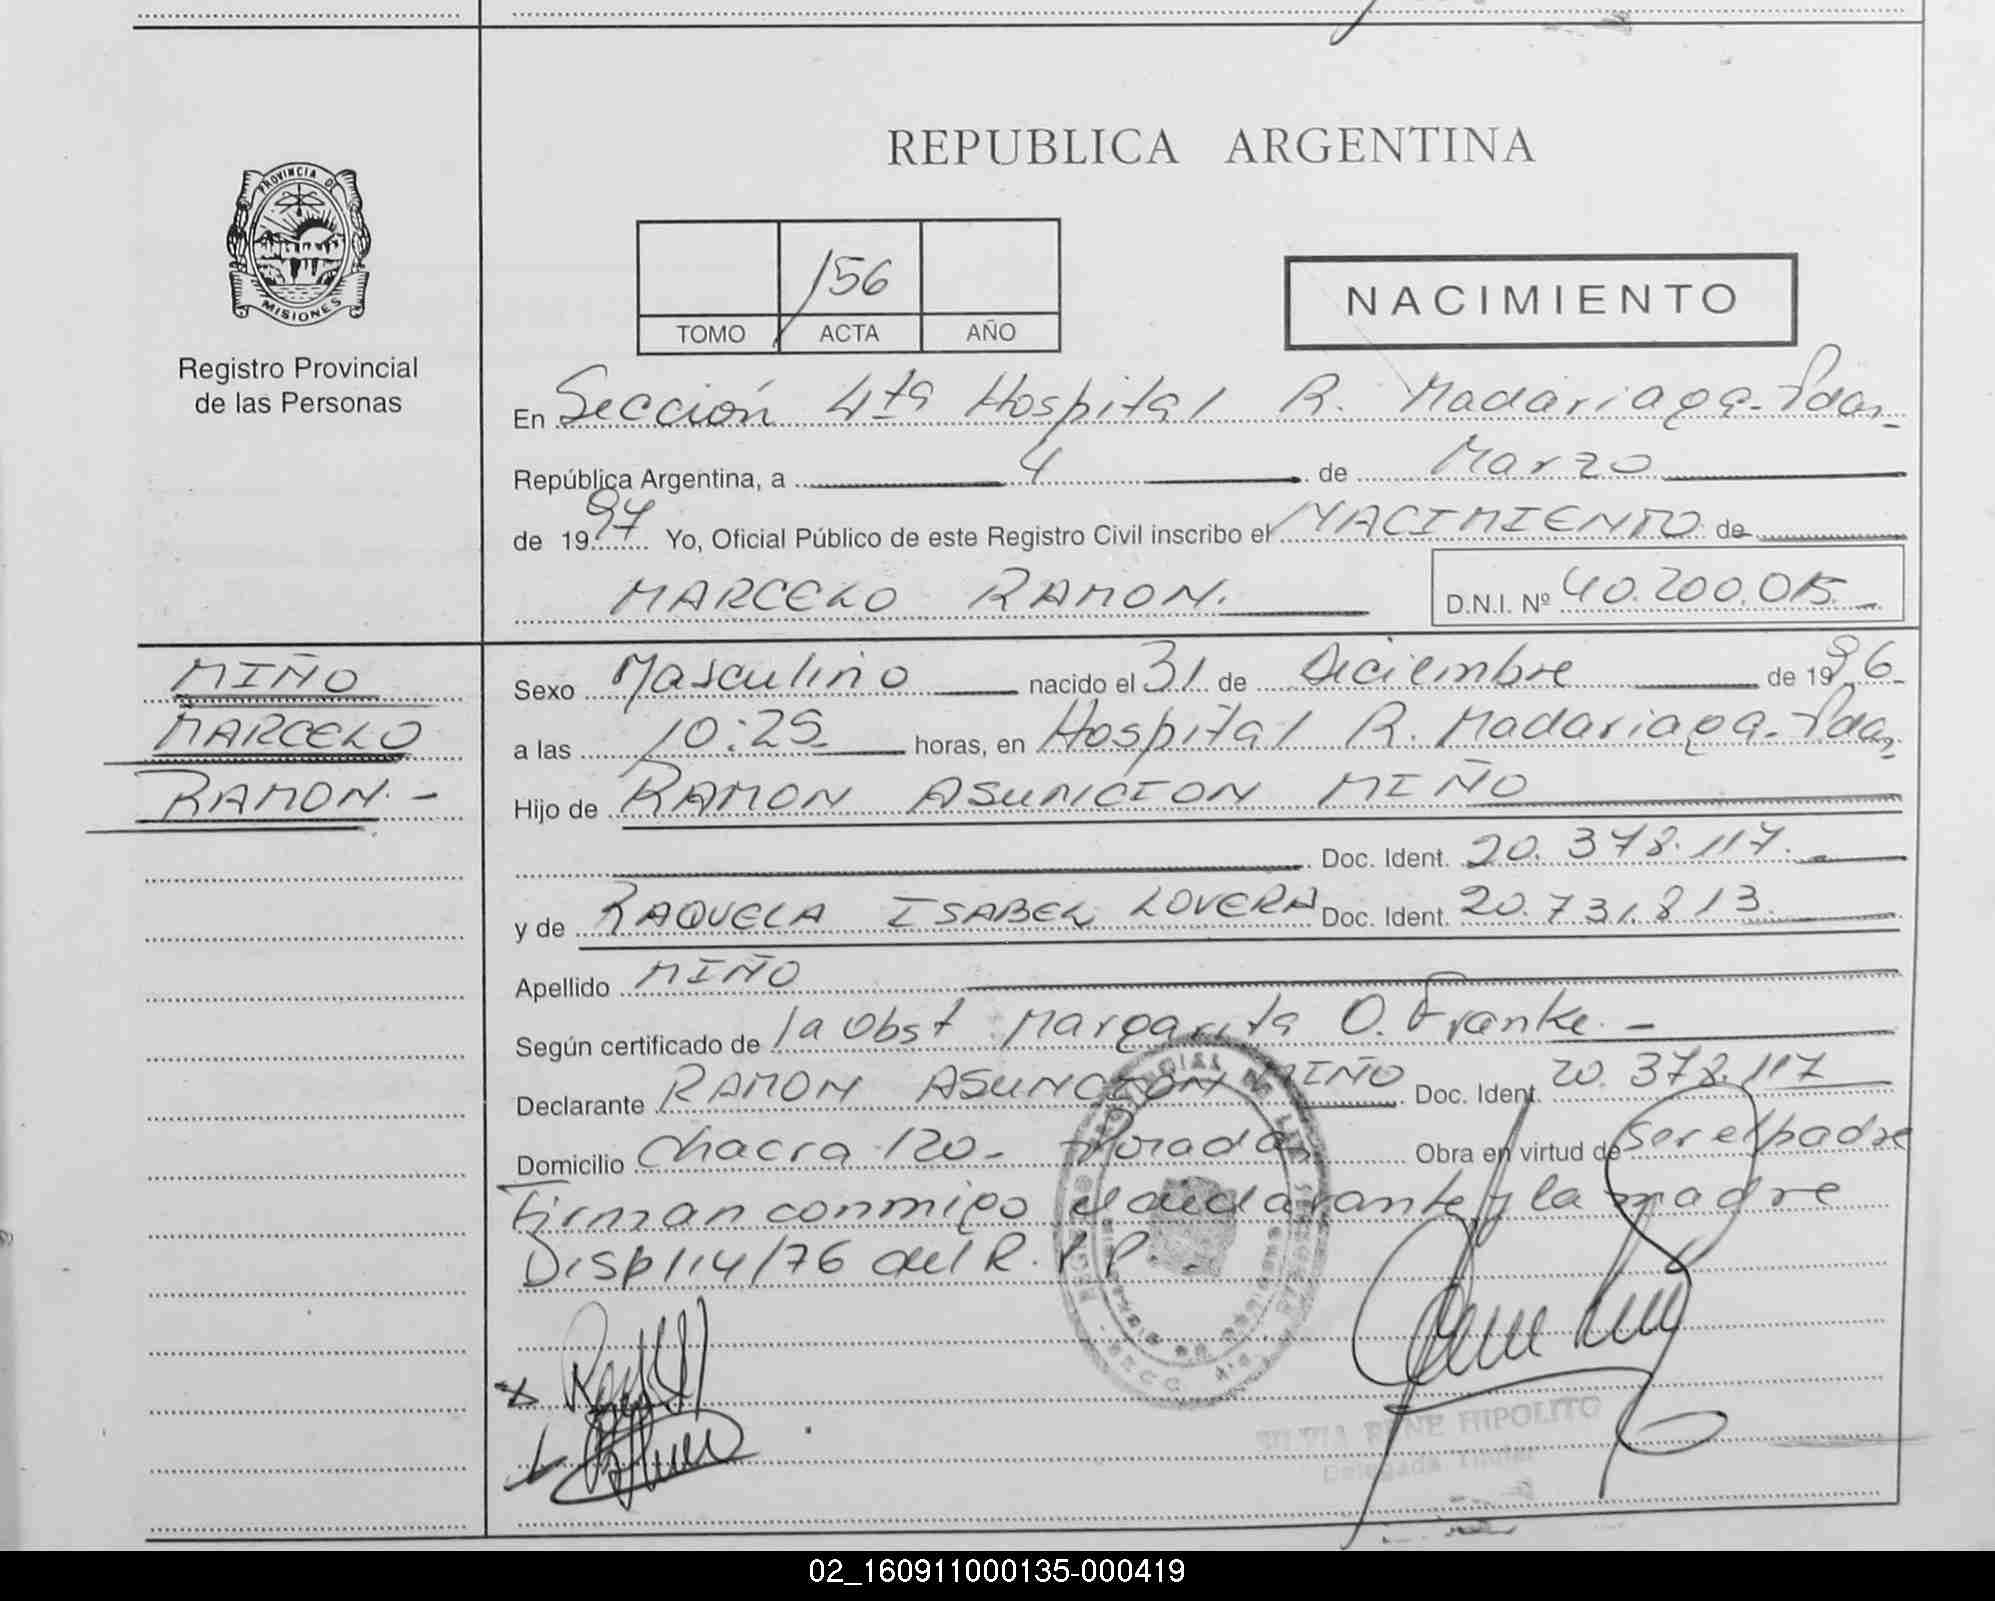 REPUBLICA ARGENTINA
PROVINCIA DE
MISIONES
Registro Provincial
de las Personas
156
TOMO ACTA AÑO
NACIMIENTO
En Sección 4ta Hospital R. Madariaga - Pdas,
República Argentina, a 4 de Marzo
de 1997 Yo, Oficial Público de este Registro Civil inscribo el NACIMIENTO de
MARCELO RAMON. D.N.I. Nº 40.200.015
MIÑO
MARCELO
RAMON. -
Sexo Masculino nacido el 31 de Diciembre de 1996
a las 10:25 horas, en Hospital R. Madariaga - Pdas,
Hijo de RAMON ASUNCION MIÑO
Doc. Ident. 20.378.117.
y de RAQUELA ISABEL LOVERA Doc. Ident. 20.731.813
Apellido MIÑO
Según certificado de la Obst. Margarita O. Franke. -
Declarante RAMON ASUNCION MIÑO Doc. Ident. 20.378.117
Domicilio Chacra 120 - Posadas Obra en virtud de ser el padre
Firman conmigo el declarante y la madre
Disp 114/76 del R. P. P.
SILVIA RENE HIPOLITO
Delegada Titular
02_160911000135-000419